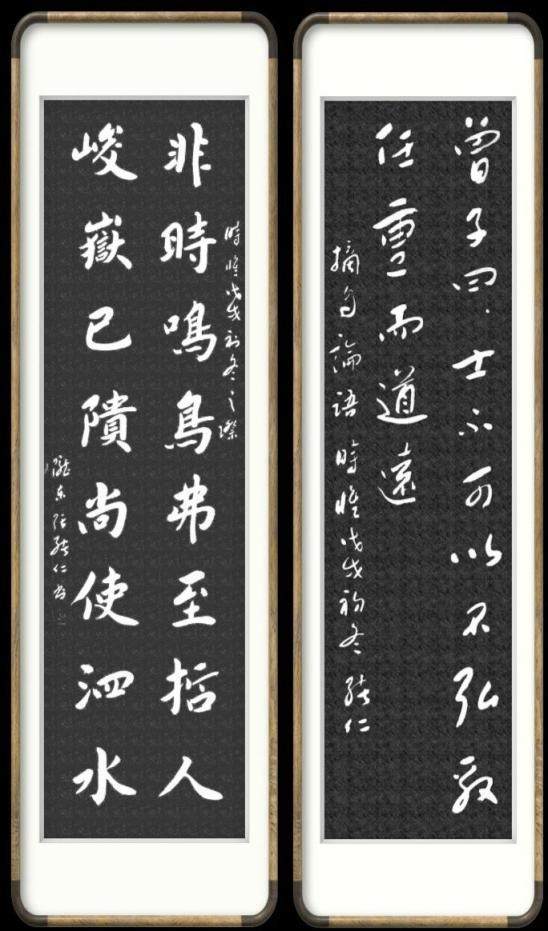 曾子曰士不可以不弘毅
任重而道遠
摘自論語 時惟戊戌初冬 仁
時惟戊戌初冬之際
非時鳴鳥弗至哲人
峻嶽已隤尚使泗水
隴東張仁書